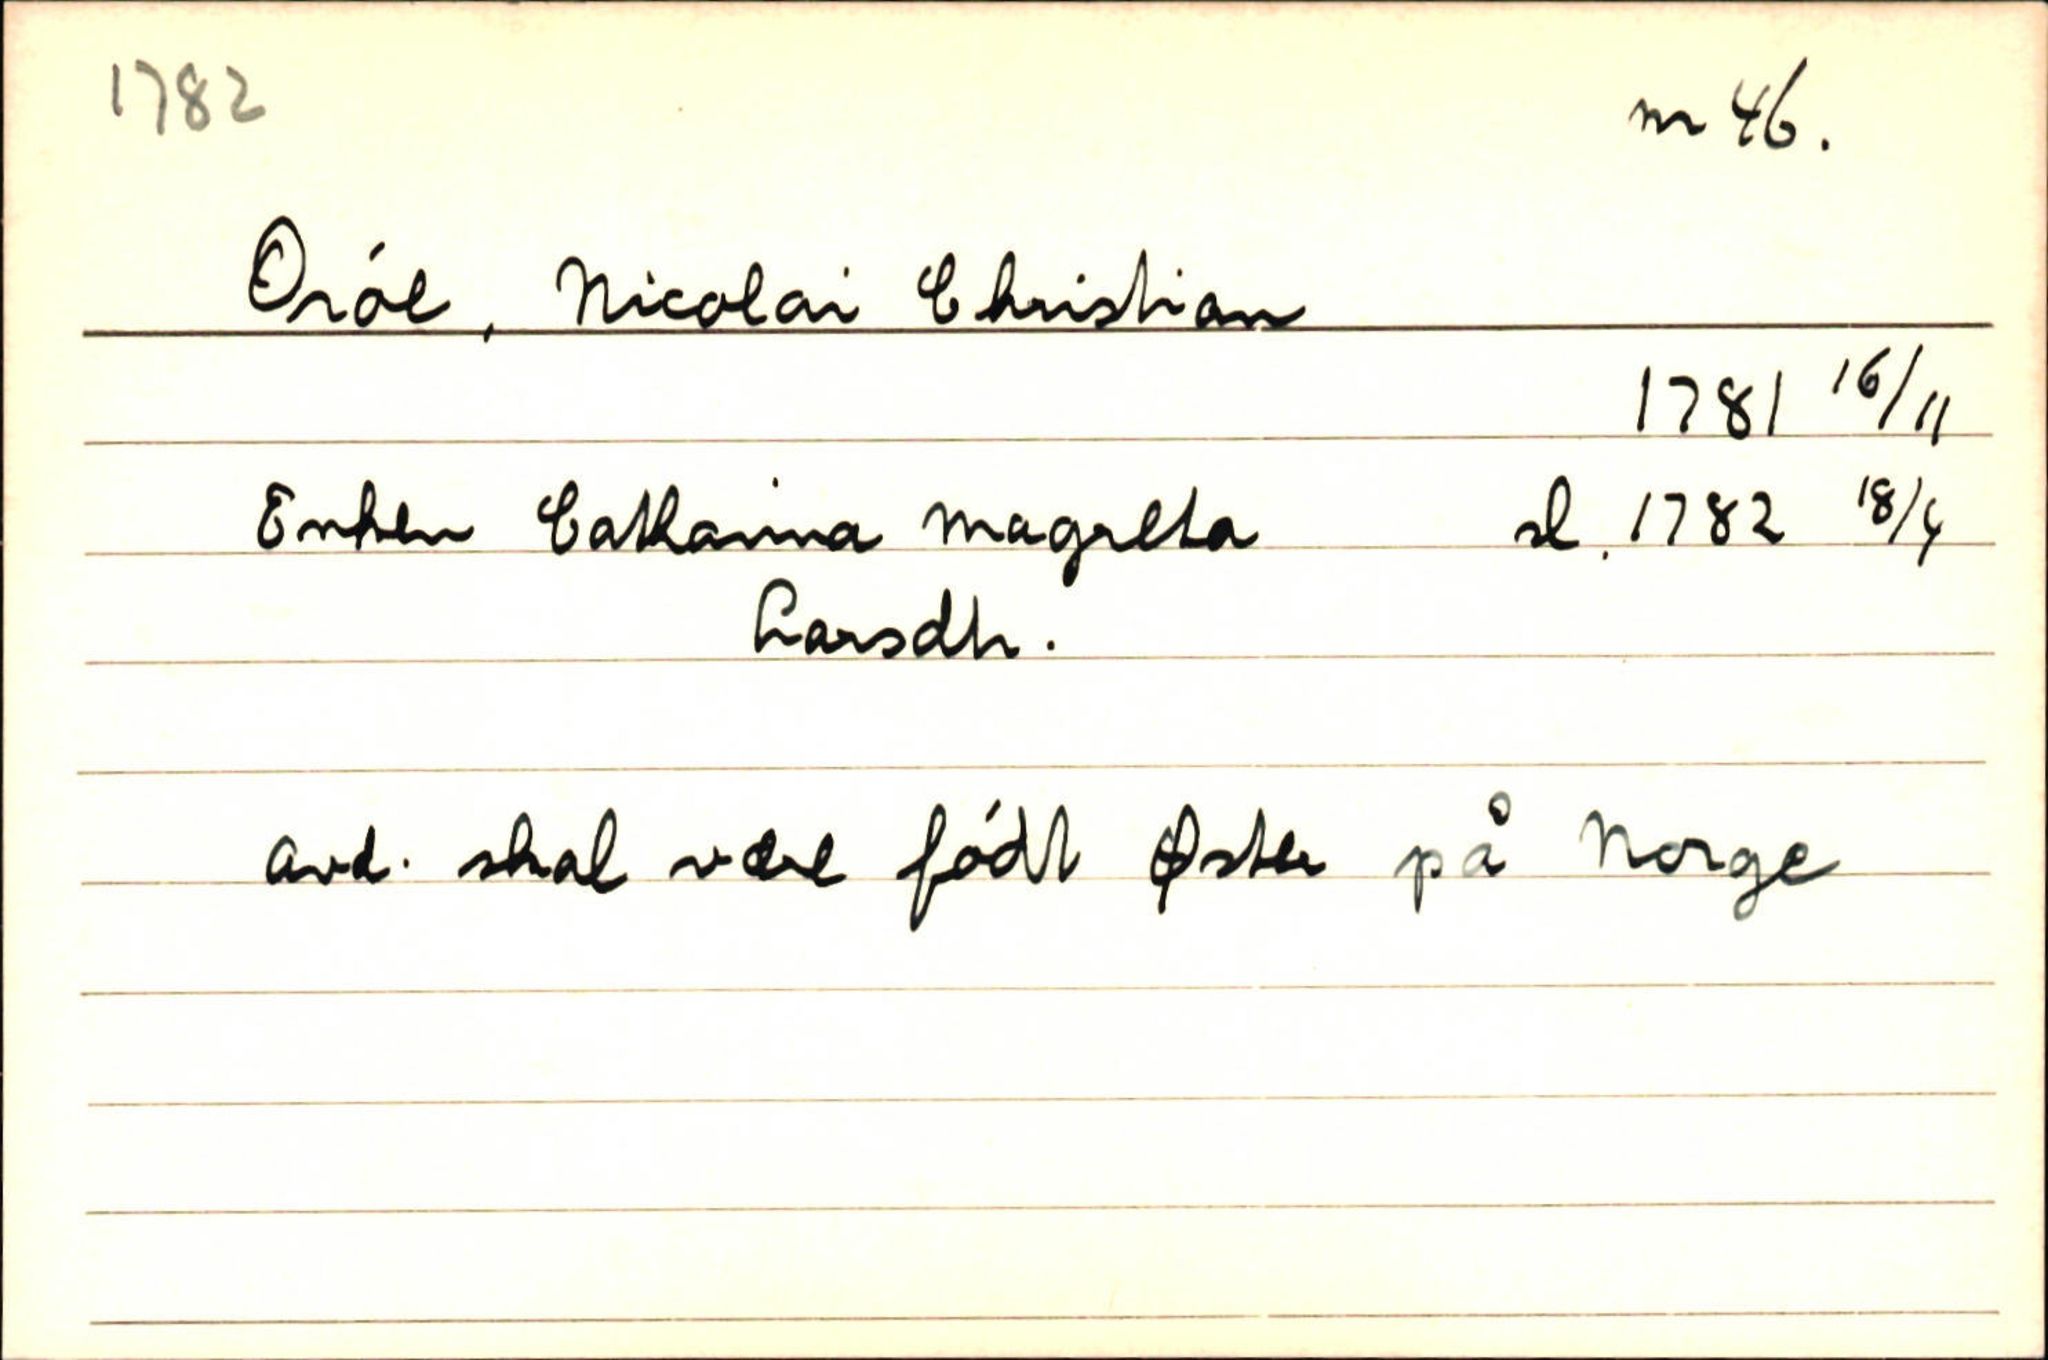 1782
nr 46.
Oróe, Nicolai Christian
1781 16/11
Enken Catharina Magreta sl. 1782 18/4
Larsdtr.
Avd. skal være födt Øster på Norge